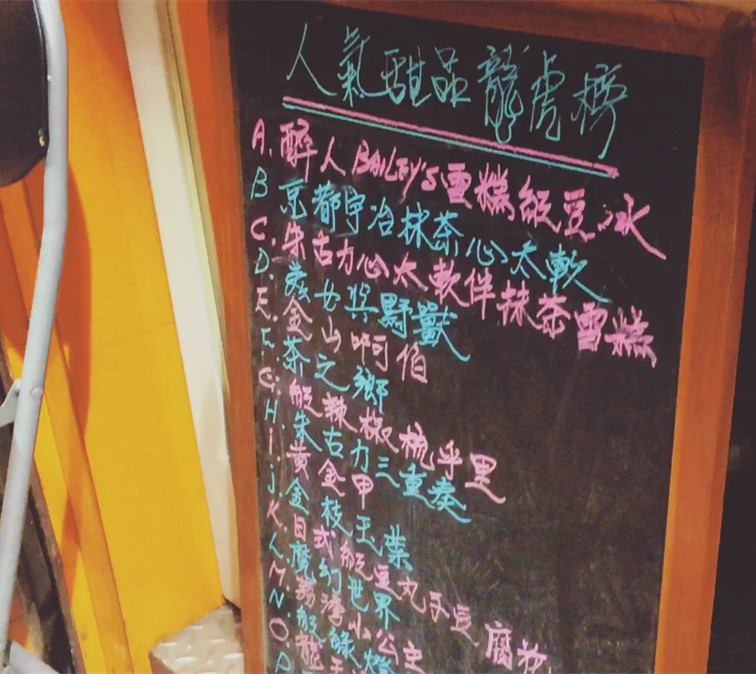 人氣甜品龍虎榜
A. 醉人BAILEY'S雪糕紅豆冰
B 京都宇治抹茶心太軟
C. 朱古力心太軟伴抹茶雪糕
D. 美女與野獸
E. 金山啊伯
F. 茶之鄉
G. 紅辣椒梳乎里
H. 朱古力三重奏
I. 黃金甲
J. 金枝玉葉
K. 日式紅豆丸子豆腐
L. 魔幻世界
M 小公主
N 紅綠燈
O. 龍
P